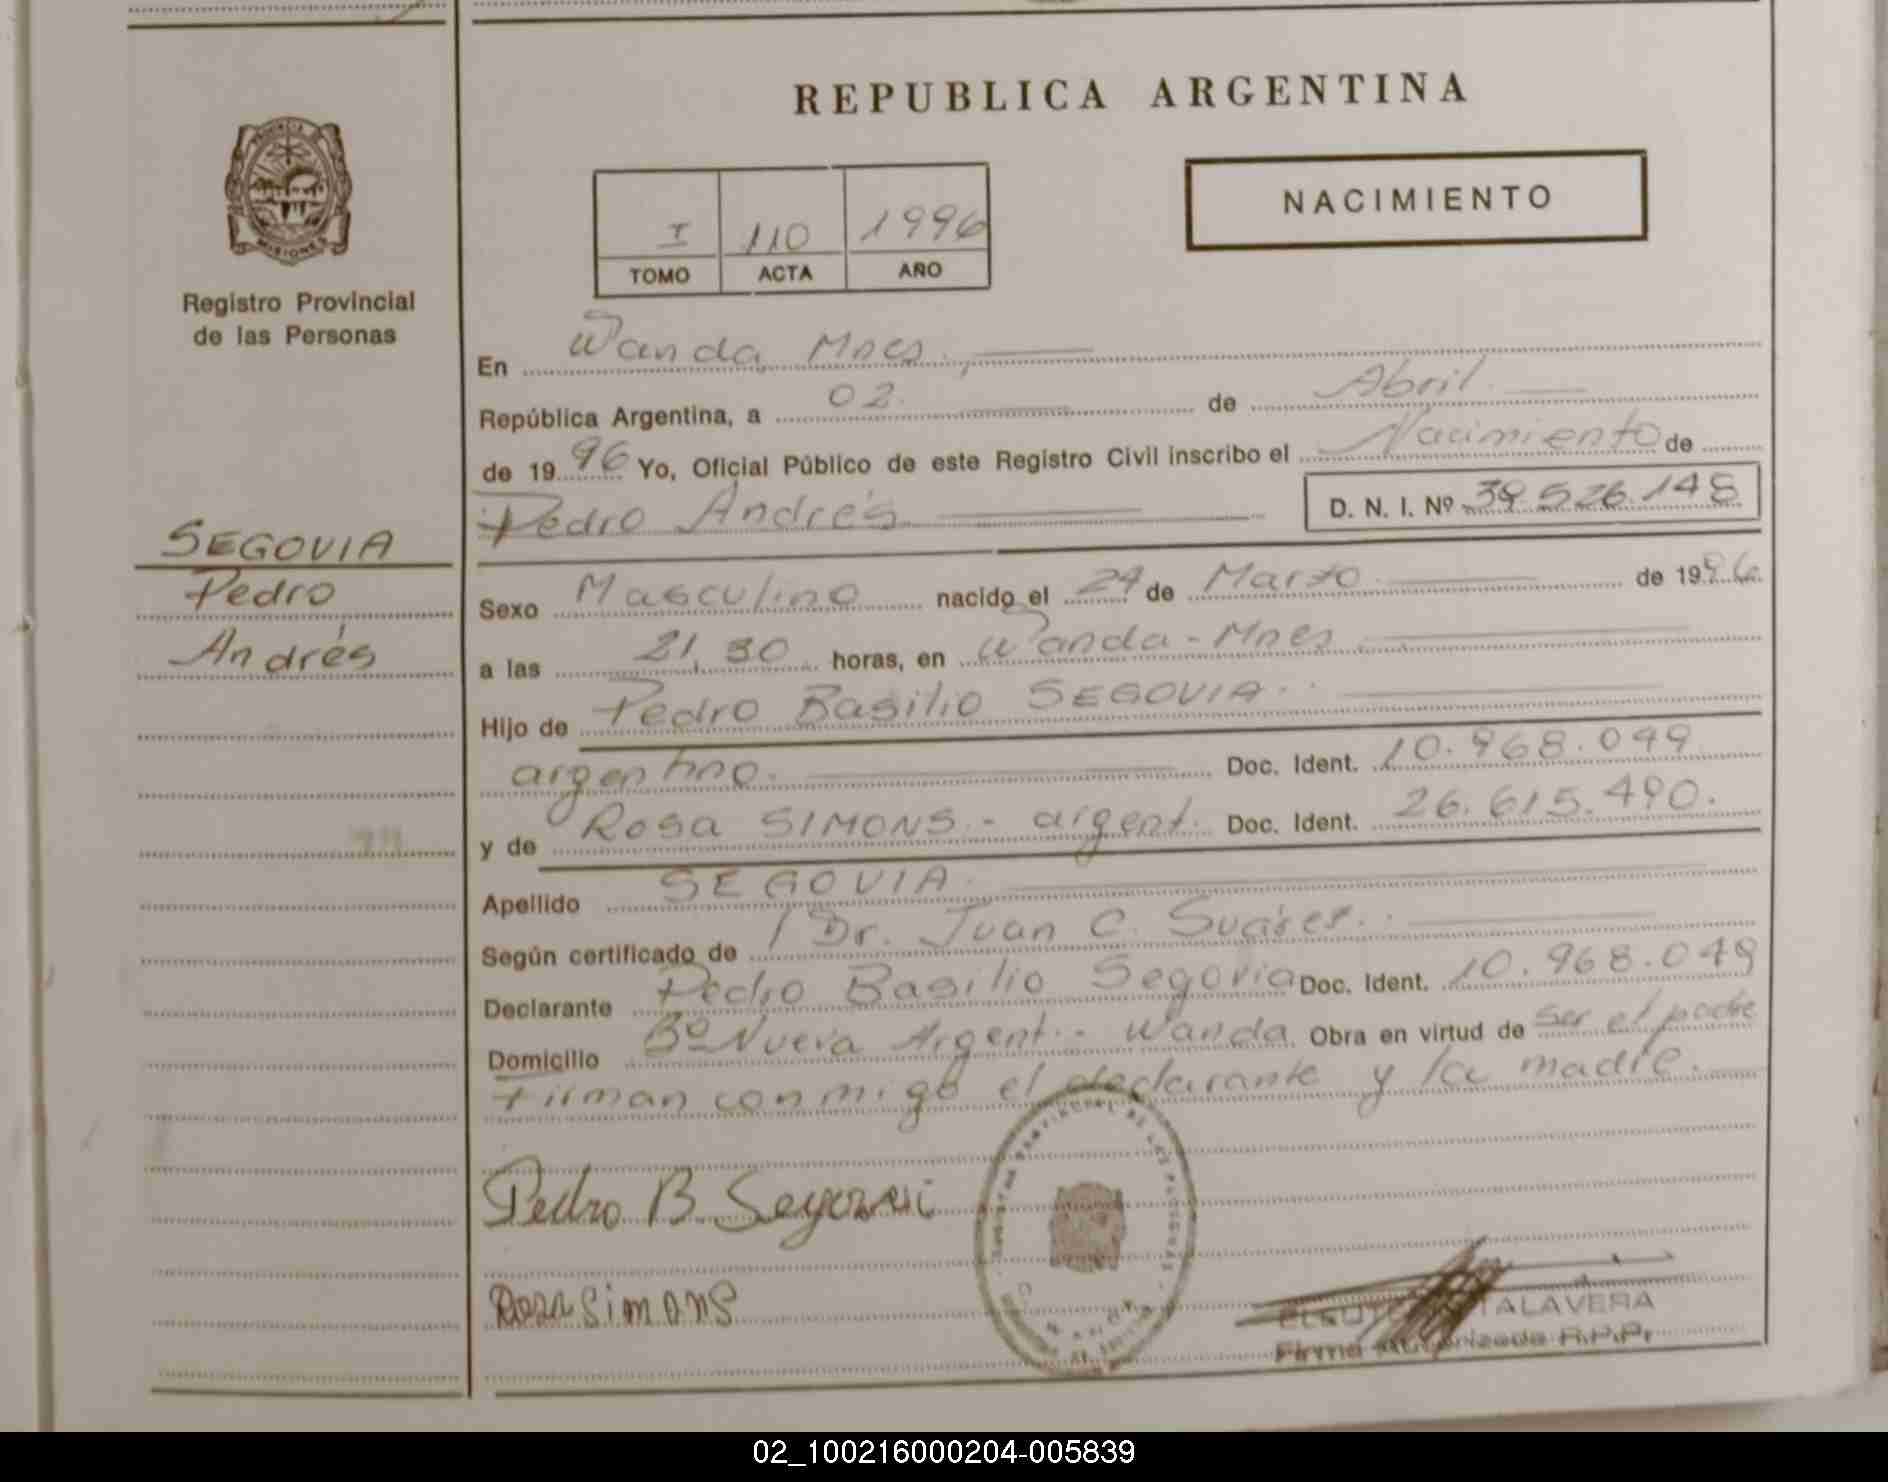 REPUBLICA ARGENTINA
PROVINCIA DE
MISIONES
Registro Provincial
de las Personas
I 110 1996
TOMO ACTA AÑO
NACIMIENTO
En Wanda, Mnes.
República Argentina, a 02 de Abril
de 1996 Yo, Oficial Público de este Registro Civil inscribo el Nacimiento de
Pedro Andrés D. N. I. Nº 39.526.148
SEGOVIA
Pedro
Andrés
Sexo Masculino nacido el 24 de Marzo de 1996
a las 21,30 horas, en Wanda - Mnes
Hijo de Pedro Basilio SEGOVIA.
argentino. Doc. Ident. 10.968.049
y de Rosa SIMONS - argent. Doc. Ident. 26.615.490.
Apellido SEGOVIA.
Según certificado de Dr. Juan C. Suáres.
Declarante Pedro Basilio Segovia Doc. Ident. 10.968.049
Domicilio Bº Nueva Argent. - Wanda Obra en virtud de ser el padre
Firman conmigo el declarante y la madre.
Pedro B. Segovia
Rosa Simons
TALAVERA
Firma Autorizada R.P.P.
02_100216000204-005839